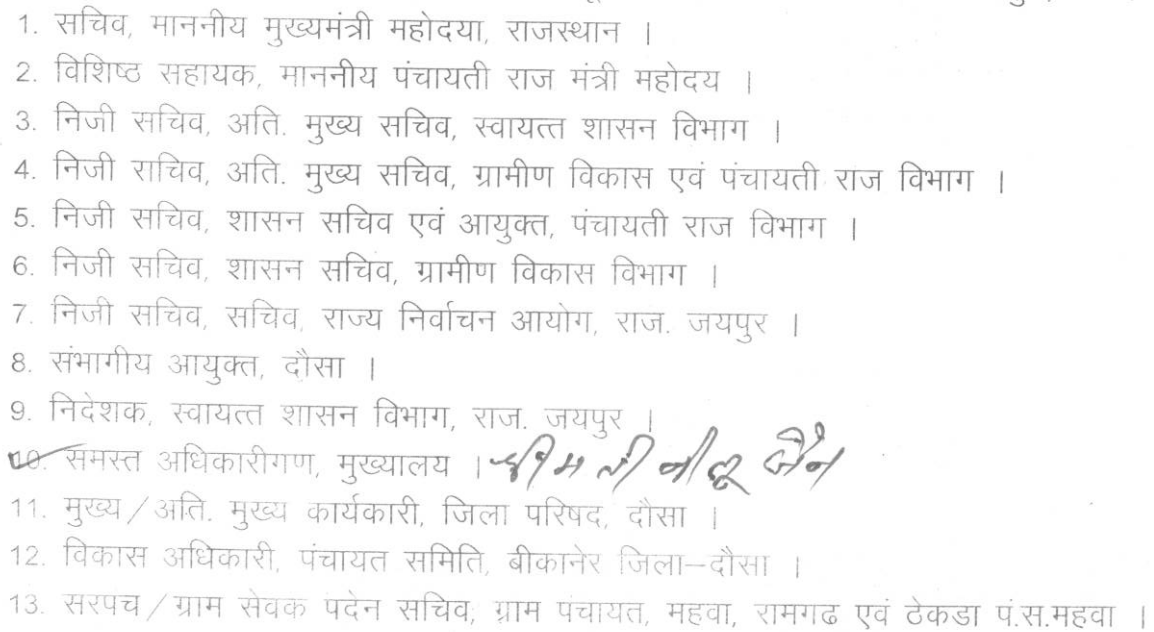 1. सचिव, माननीय मुख्यमंत्री महोदया, राजस्थान ।
2. विशिष्ठ सहायक, माननीय पंचायती राज मंत्री महोदय ।
3. निजी सचिव, अति. मुख्य सचिव, स्वायत्त शासन विभाग ।
4. निजी सचिव, अति. मुख्य सचिव, ग्रामीण विकास एवं पंचायती राज विभाग ।
5. निजी सचिव, शासन सचिव एवं आयुक्त, पंचायती राज विभाग ।
6. निजी सचिव, शासन सचिव, ग्रामीण विकास विभाग ।
7. निजी सचिव, सचिव, राज्य निर्वाचन आयोग, राज. जयपुर ।
8. संभागीय आयुक्त, दौसा ।
9. निदेशक, स्वायत्त शासन विभाग, राज. जयपुर ।
10. समस्त अधिकारीगण, मुख्यालय । श्रीमती नीलू जैन
11. मुख्य/अति. मुख्य कार्यकारी, जिला परिषद, दौसा ।
12. विकास अधिकारी, पंचायत समिति, बीकानेर जिला–दौसा ।
13. सरपच/ग्राम सेवक पदेन सचिव, ग्राम पंचायत, महवा, रामगढ एवं ठेकडा पं.स.महवा ।